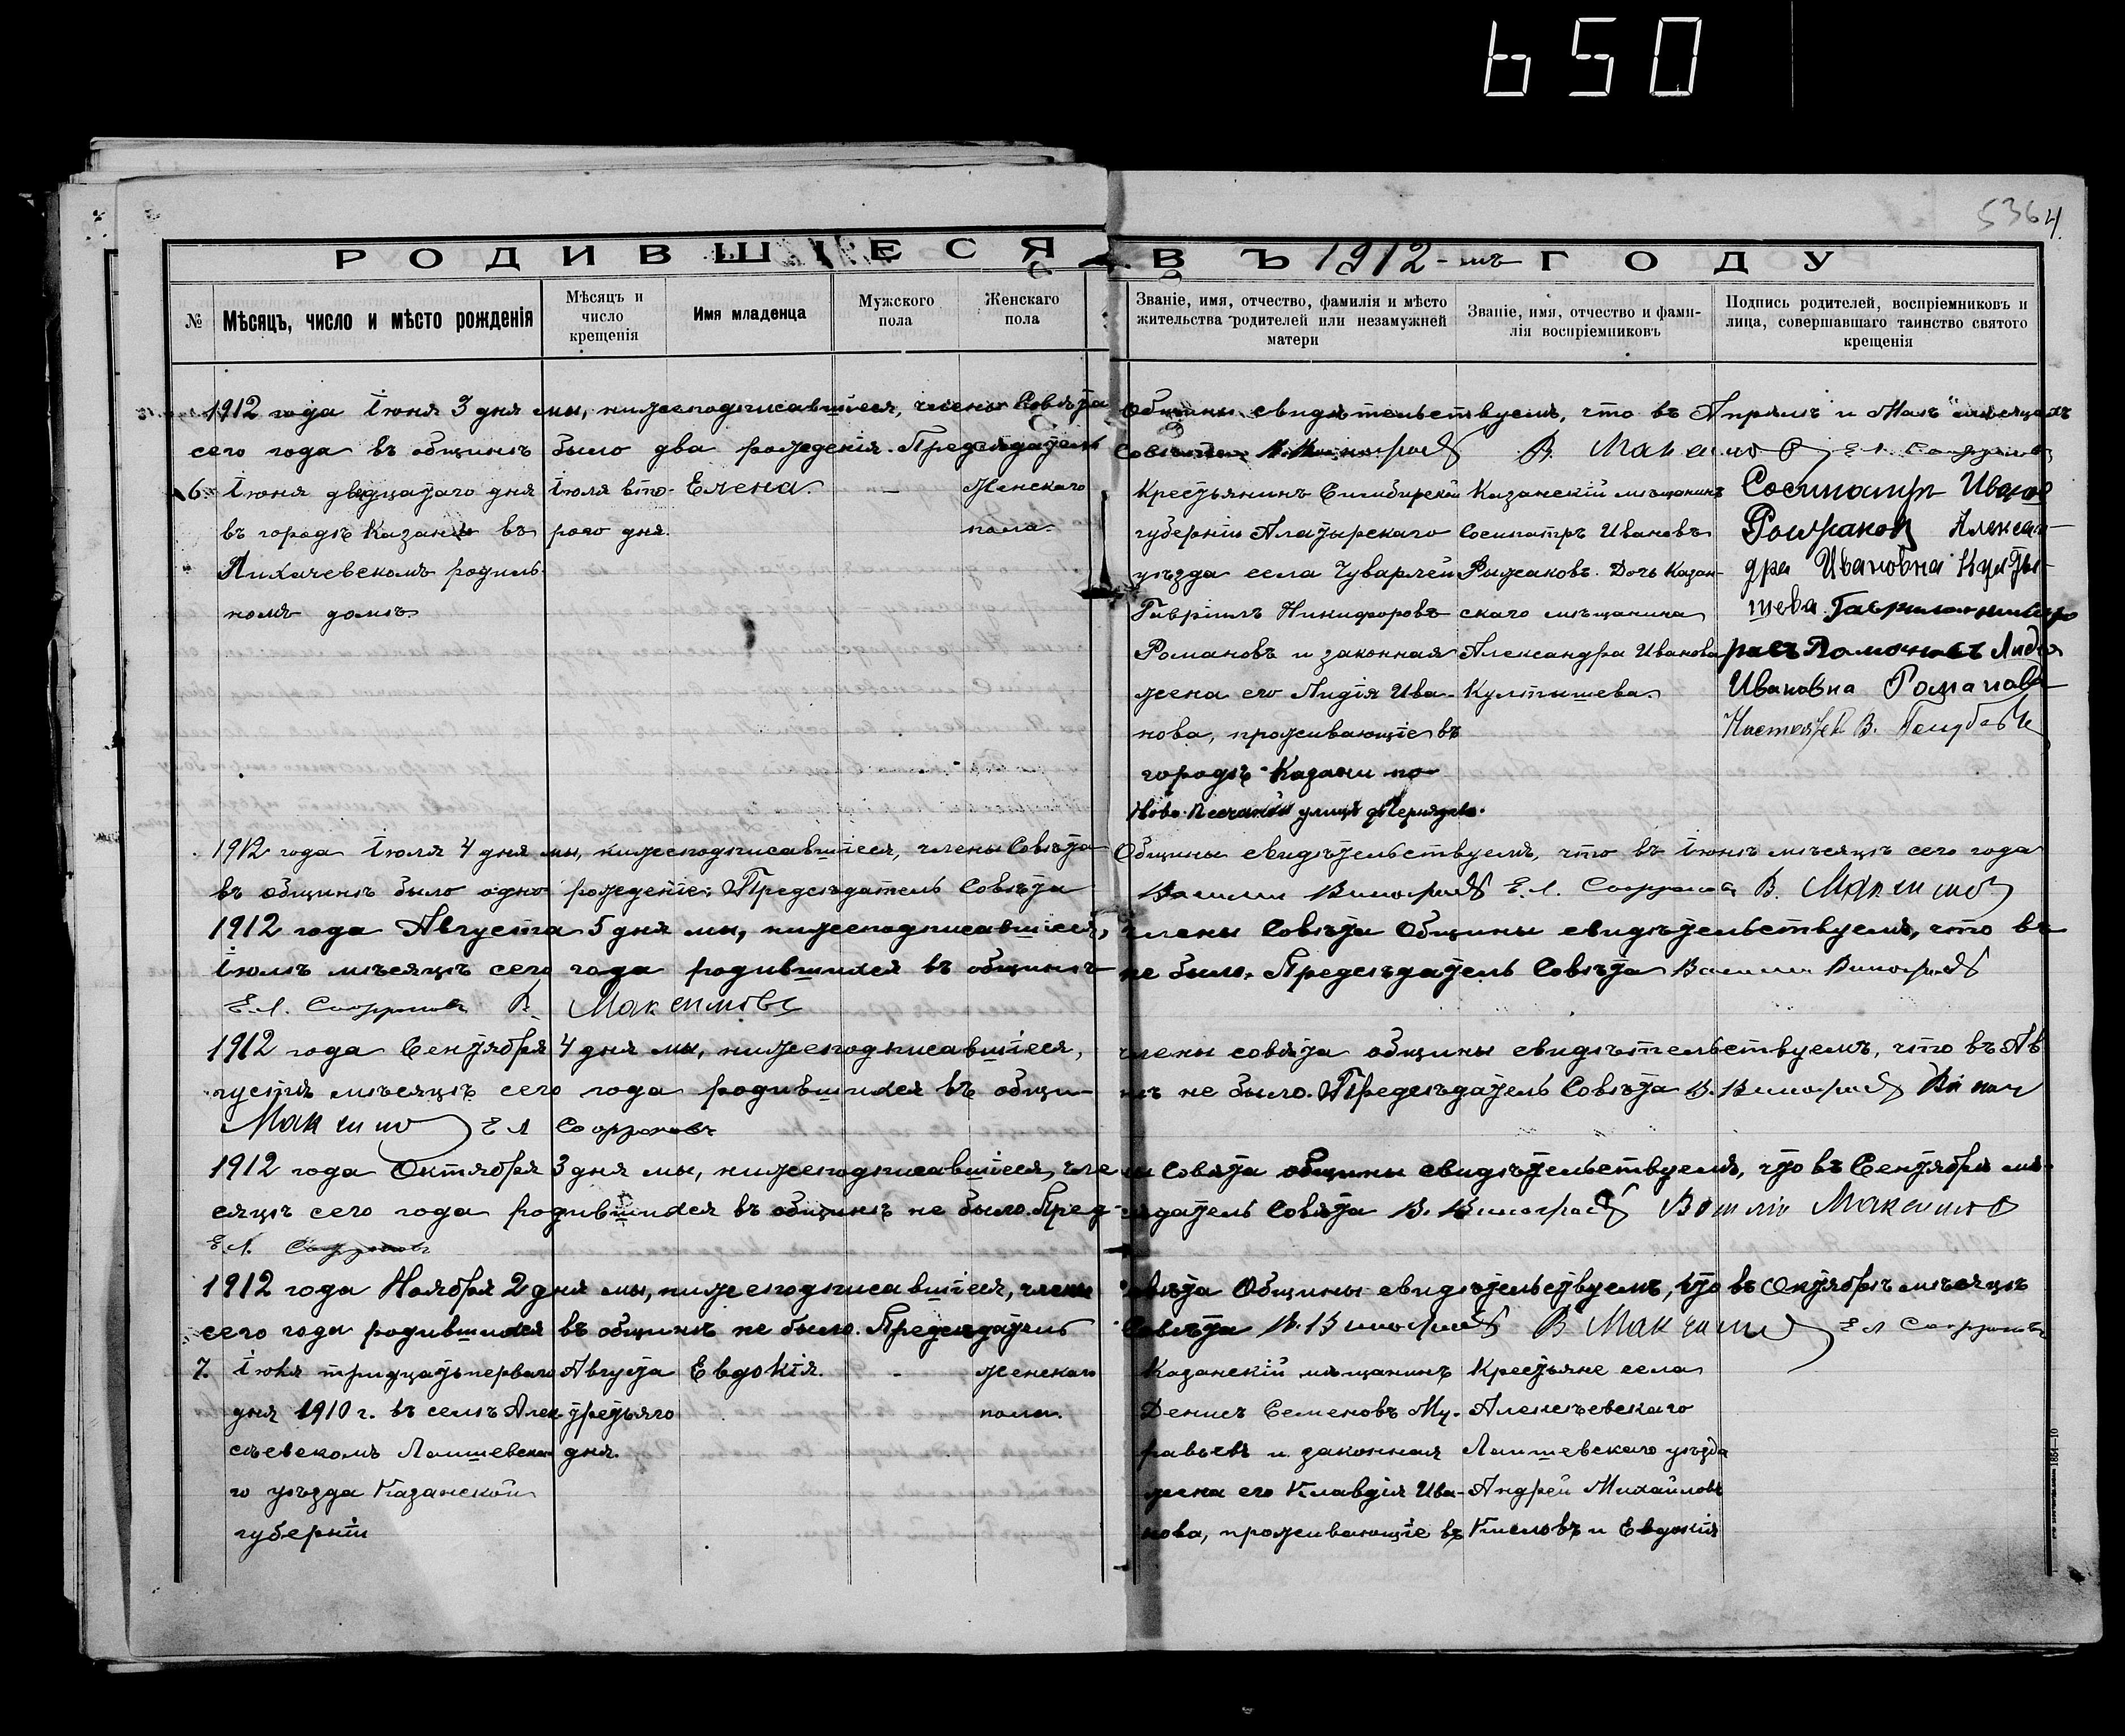 650
5364
РОДИВШІЕСЯ ВЪ 1912-мъ ГОДУ
№
Мѣсяцъ, число и мѣсто рожденія
Мѣсяцъ и
число
крещенія
Имя младенца
Мужского
пола
Женскаго
пола
Званіе, имя, отчество, фамилія и мѣсто
жительства родителей или незамужней
матери
Званіе, имя, отчество и фами-
лія воспріемниковъ
Подпись родителей, воспріемниковъ и
лица, совершавшаго таинство святого
крещенія
1912 года Іюня 3 дня мы, нижеподписавшіеся, члены Совѣта Общины свидѣтельствуемъ, что въ Апрѣлѣ и Маѣ мѣсяцахъ
сего года въ общинѣ было два рожденія. Предсѣдатель Совѣта В. Максимов Е. Л. Сафронов
6.
Іюня двадцатаго дня
въ городѣ Казани въ
Лихачевскомъ родиль-
номъ домѣ
Іюля вто-
рого дня.
Елена.
-
Женскаго
пола.
Крестьянинъ Симбирской
губерніи Алатырскаго
уѣзда села Чуварлей
Гавріилъ Никифоровъ
Романовъ и законная
жена его Лидія Ива-
нова, проживающіе въ
городѣ Казани по
Ново-Песчаной улицѣ
Казанскій мѣщанинъ
Сосипатръ Ивановъ
Рыжаковъ. Дочь Казан-
скаго мѣщанина
Александра Иванова
Култышева.
Сосипатръ Иванов
Рыжаков Алексан-
дра Ивановна Култы-
шева
Лидия
Ивановна Романова
В. Голубевъ
1912 года Іюля 4 дня мы, нижеподписавшіеся, члены Совѣта Общины свидѣтельствуемъ, что въ Іюнѣ мѣсяцѣ сего года
въ общинѣ было одно рожденіе. Предсѣдатель Совѣта Василий Виноградов Е. Л. Сафронов В. Максимов
1912 года Августа 5 дня мы, нижеподписавшіеся, члены Совѣта Общины свидѣтельствуемъ, что въ
Іюлѣ мѣсяцѣ сего года родившихся въ общинѣ не было. Предсѣдатель Совѣта Василий Виноградов
Е. Л. Сафронов В. Максимовъ
1912 года Сентября 4 дня мы, нижеподписавшіеся, члены совѣта общины свидѣтельствуемъ, что въ Ав
густѣ мѣсяцѣ сего года родившихся въ общи- нѣ не было. Предсѣдатель Совѣта В. Виноградов
Максимов Е Л Сафроновъ
1912 года Октября 3 дня мы, нижеподписавшіеся, члены Совѣта общины свидѣтельствуемъ, что въ Сентябрѣ мѣ-
сяцѣ сего года родившихся въ общинѣ не было. Предсѣдатель Совѣта В. Виноградов Василій Максимов
Е. Л. Сафроновъ
1912 года Ноября 2 дня мы, нижеподписавшіеся, члены Совѣта Общины свидѣтельствуемъ, что въ Октябрѣ мѣсяцѣ
сего года родившихся въ общинѣ не было. Предсѣдатель Совѣта В. Виноградов В Максимов Е Л Сафроновъ
7.
Іюля тридцать перваго
дня 1910 г. въ селѣ Алек
сѣевскомъ Лаишевска
го уѣзда Казанской
губерніи
Августа
третьяго
дня.
Евдокія.
-
Женскаго
пола.
Казанскій мѣщанинъ
Денисъ Семеновъ Му-
равьевъ и законная
жена его Клавдія Ива-
нова, проживающіе въ
Крестьяне села
Алексѣевскаго
Лаишевскаго уѣзда
Андрей Михайловъ
Кисловъ и Евдокія